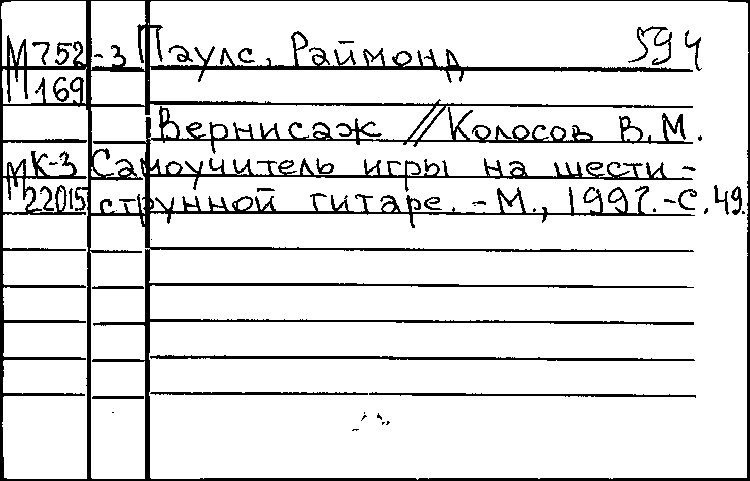 М752-3 Паулс, Раймонд 594
М169
Вернисаж // Колосов В.М.
МК-3 Самоучитель игры на шести-
М22015 струнной гитаре. - М., 1997. - С. 49.